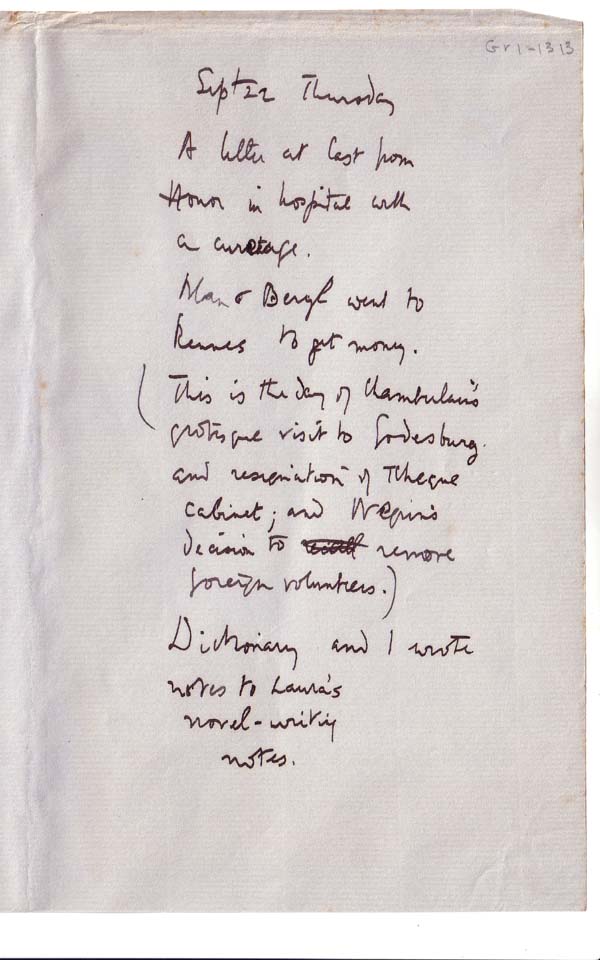 Gr1-1313
Sept 22 Thursday
A letter at last from
Honor in hospital with
a curetage.
Alan & Beryl went to
Rennes to get money.
(This is the day of Chamberlain's
grotesque visit to Godesburg.
and resignation of Tcheque
cabinet; and Negrin's
decision to remove
foreign volunteers.)
Dictionary and I wrote
notes to Laura's
novel-writing
notes.